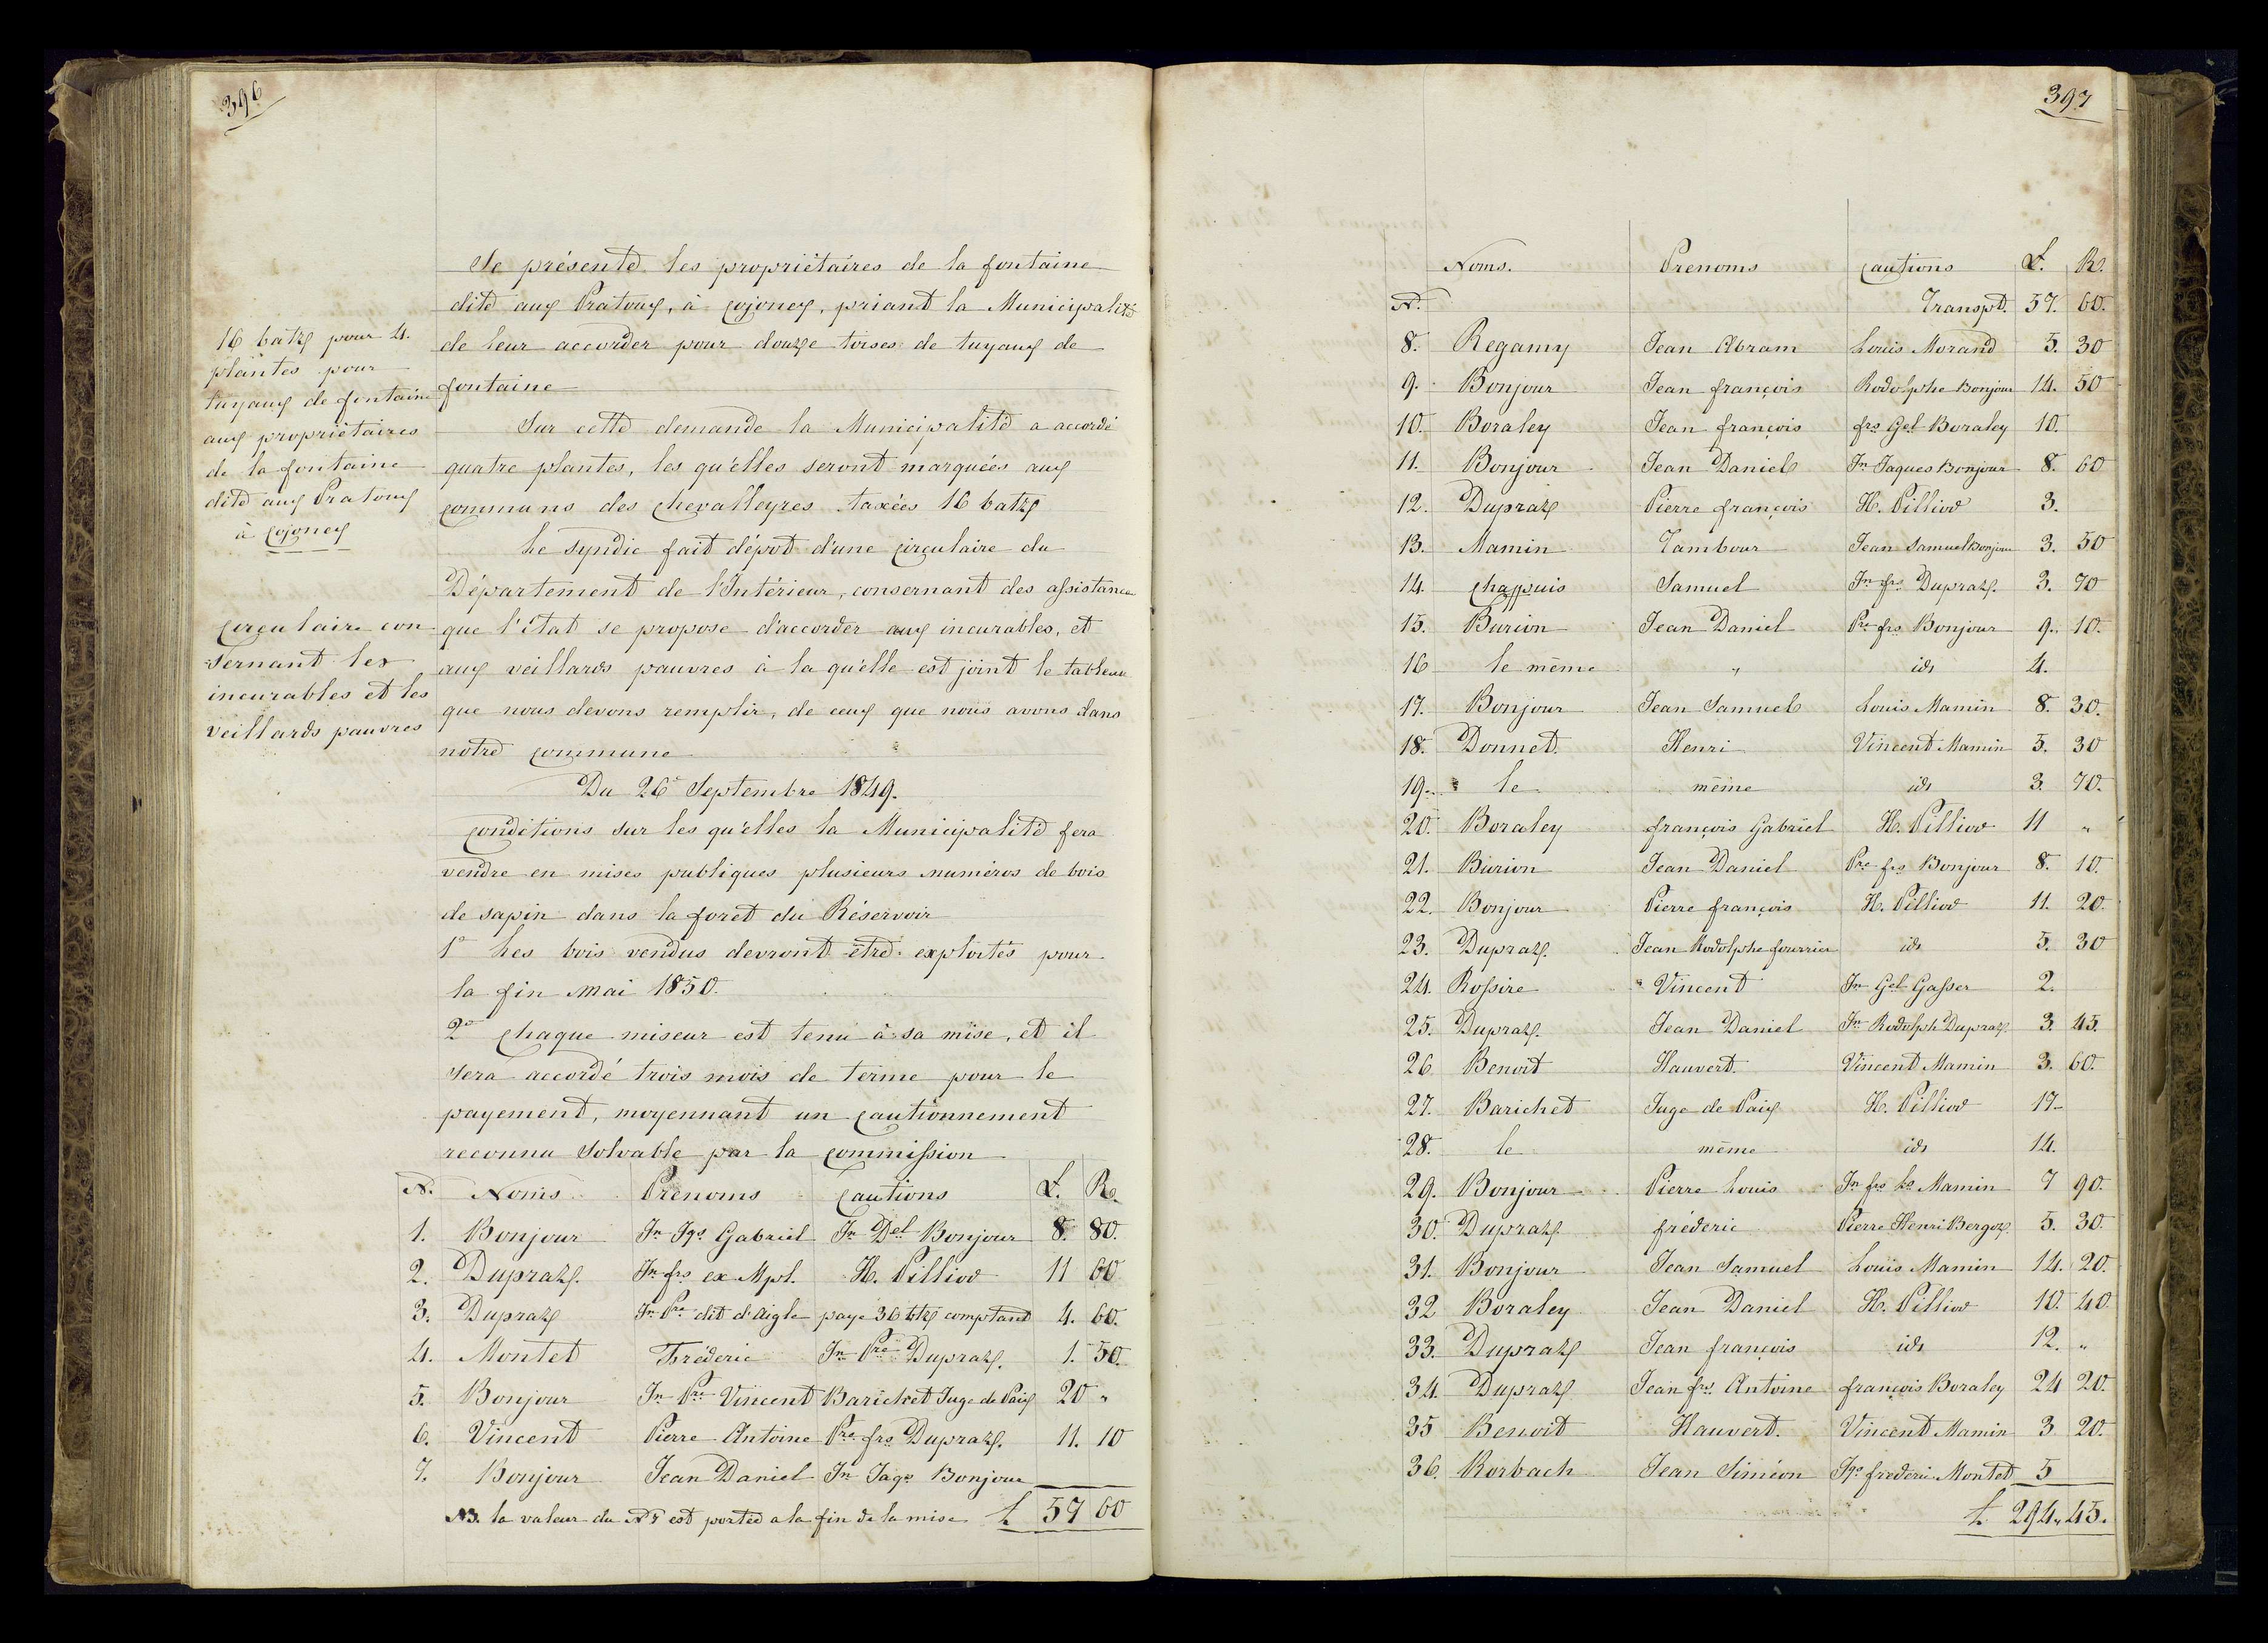 396
16 batz pour 4.
plantes pour
tuyaux de fontaine
aux propriétaires
de la fontaine
dite aux Pratoux
à Cojonex
Circulaire con
sernant les
incurables et les
veillards pauvres
Se présente les propriétaires de la fontaine
dite aux Pratoux, à Cojonex, priant la Municipalité
de leur accorder pour douze toises de tuyaux de
fontaine
Sur cette demande la Municipalité a accordé
quatre plantes, les qu'elles seront marquées aux
communs des Chevalleyres taxées 16 batz
Le Syndic fait dépot d'une Circulaire du
Département de l'Intérieur, consernant des assistance
que l'état se propose d'accorder aux incurables, et
aux veillards pauvres à la qu'elle est joint le tableau
que nous devons remplir, de ceux que nous avons dans
notre Commune
Du 26e Septembre 1849.
Conditions sur les qu'elles la Municipalité fera
vendre en mises publiques plusieurs numéros de bois
de sapin dans la foret du Réservoir
1o Les bois vendus devront être exploités pour
la fin Mai 1850.
2o Chaque miseur est tenu à sa mise, et il
sera accordé trois mois de terme pour le
payement, moyennant un Cautionnement
reconnu Solvable par la Commission
N. Noms Prenoms Cautions L. R.
1. Bonjour Jn Jqs Gabriel Jn Del Bonjour 8. 80.
2. Dupraz. Jn frs ex Mpl. H. Pilliod 11 60
3. Dupraz Jn Pre dit d'Aigle paye 36 btz comptant 4. 60.
4. Montet Fréderic Jn Pre Dupraz. 1. 50.
5. Bonjour Jn Pre Vincent Barichet Juge de Paix 20 "
6. Vincent Pierre Antoine Pre frs Dupraz. 11. 10
7. Bonjour Jean Daniel Jn Jaqs Bonjour
NB. la valeur du No 7 est portée a la fin de la mise L 57 60
397
Noms. Prenoms Cautions L. R.
N. Transpt. 57. 60.
8. Regamy Jean Abram Louis Morand 5. 30
9. Bonjour Jean françois Rodolphe Bonjour 14. 50
10. Boraley Jean françois frs Gel Boraley 10.
11. Bonjour Jean Daniel Jn Jaques Bonjour 8. 60
12. Dupraz Pierre françois H. Pilliod 3.
13. Mamin Tambour Jean Samuel Bonjour 3. 50
14. Chappuis Samuel Jn frs Dupraz. 3. 70
15. Burion Jean Daniel Pre frs Bonjour 9. 10.
16 le même " id 4.
17. Bonjour Jean Samuel Louis Mamin 8. 30.
18. Donnet. Henri Vincent Mamin 5. 30
19. le même id 3. 70.
20. Boraley françois Gabriel H. Pilliod 11 "
21. Burion Jean Daniel Pre frs Bonjour 8. 10.
22. Bonjour Pierre françois H. Pilliod 11. 20.
23. Dupraz. Jean Rodolphe fourrier id 5. 30
24. Rossire Vincent Jn Gel Gasser 2.
25. Dupraz. Jean Daniel Jn Rodolph Dupraz. 3. 45.
26 Benoit Hauvert. Vincent Mamin 3. 60.
27. Barichet Juge de Paix H. Pilliod 17
28. le même id 14.
29. Bonjour Pierre Louis Jn frs Ls Mamin 7 90.
30. Dupraz. fréderic Pierre Henri Bergoz. 5. 30.
31. Bonjour Jean Samuel Louis Mamin 14. 20.
32 Boraley Jean Daniel H. Pilliod 10. 40
33. Dupraz Jean françois id 12. "
34. Dupraz Jean frs Antoine françois Boraley 24 20.
35 Benoit Hauvert. Vincent Mamin 3 20.
36. Rorbach Jean Siméon Jqs frederic Montet 5
L. 294. 45.